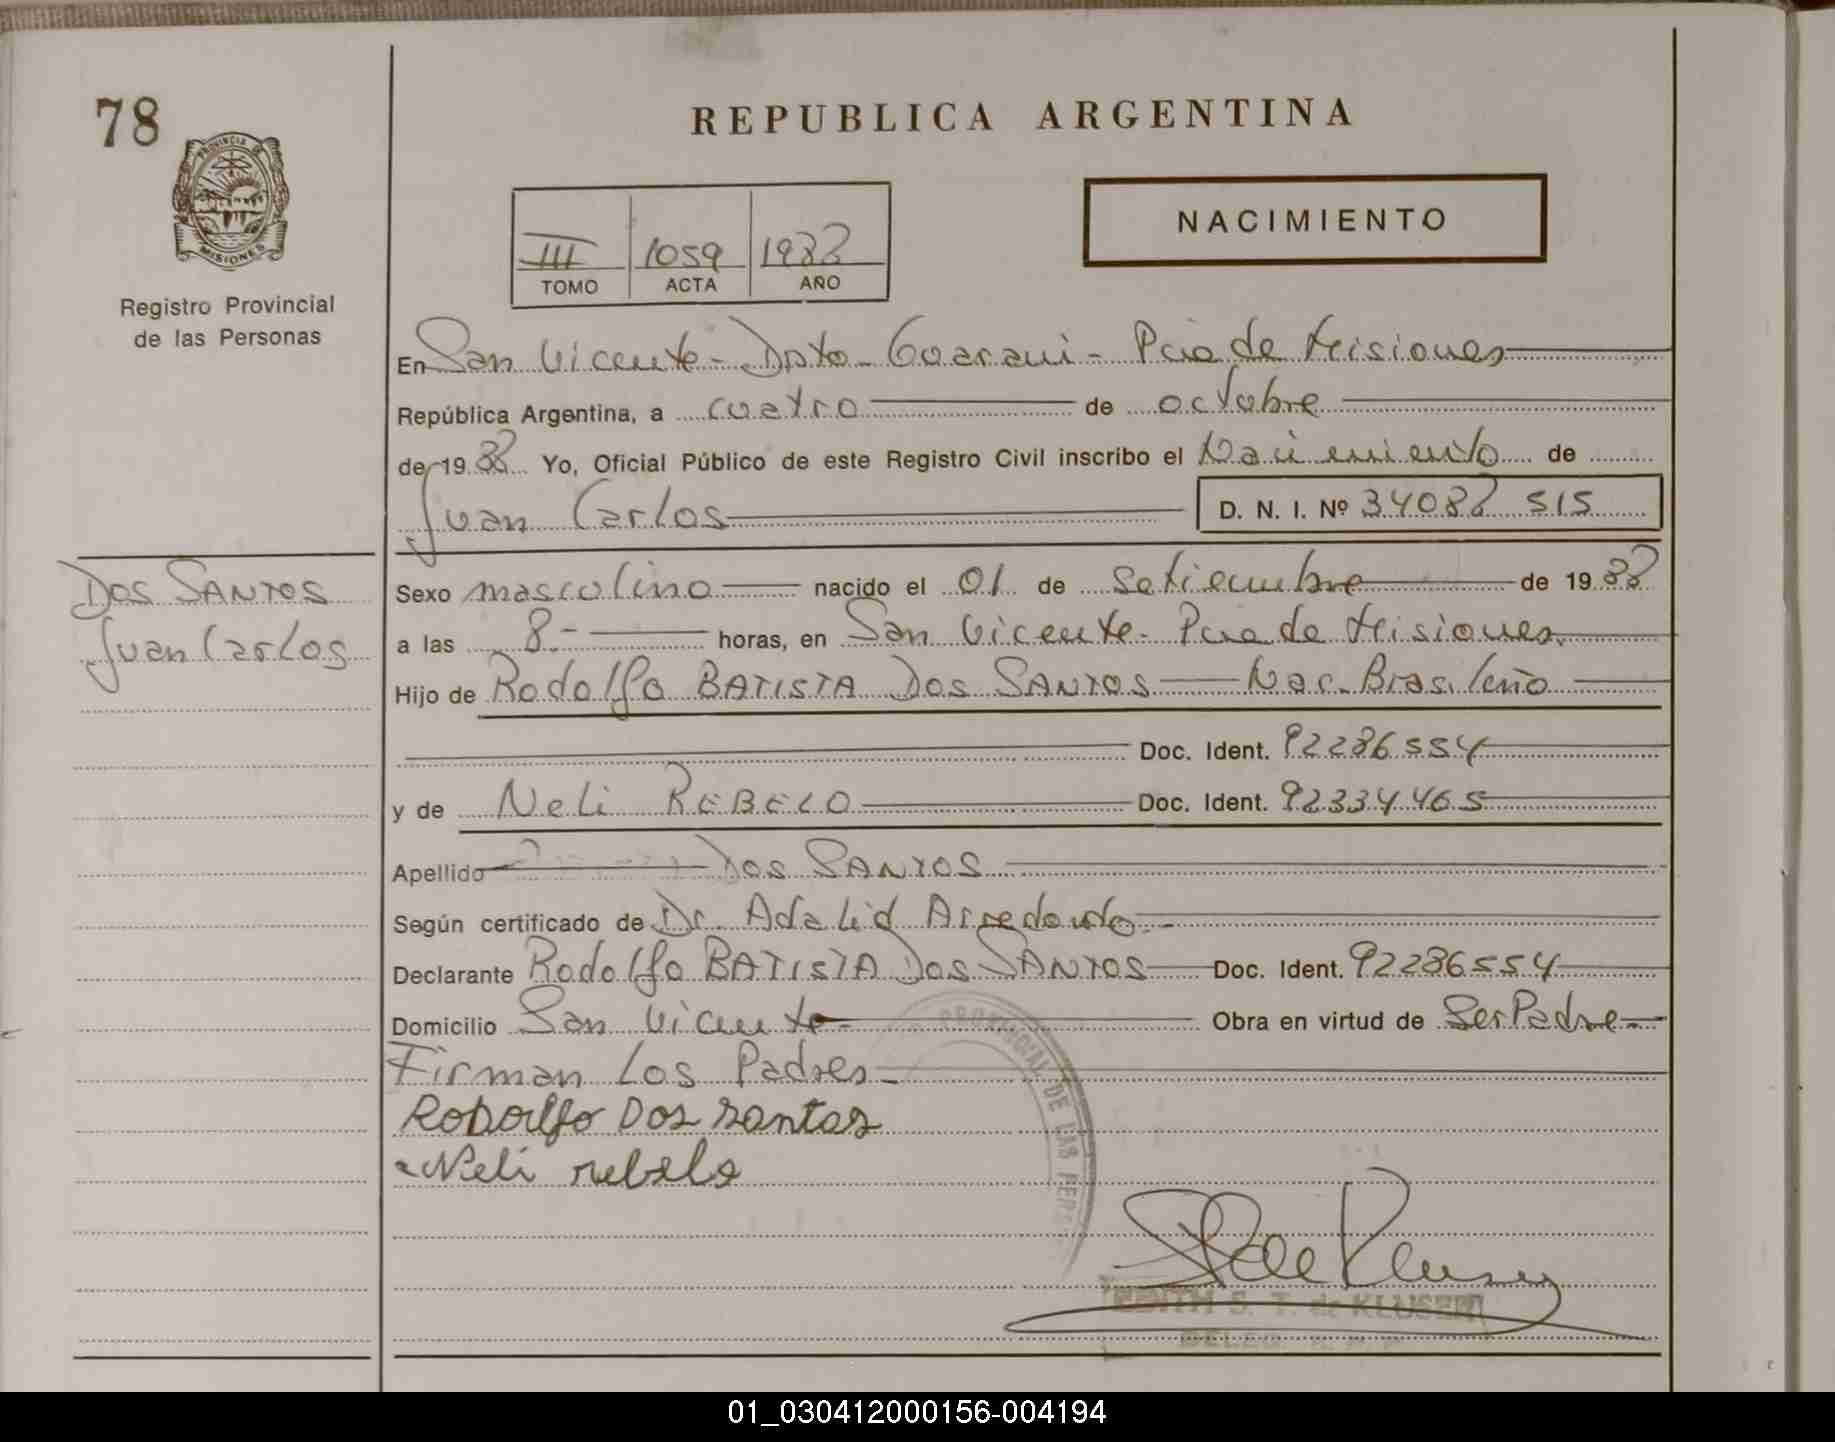 78
REPUBLICA ARGENTINA
PROVINCIA DE
MISIONES
Registro Provincial
de las Personas
III 1059 1988
TOMO ACTA AÑO
NACIMIENTO
En San Vicente - Dpto - Guarani - Pcia de Misiones
República Argentina, a cuatro de octubre
de 19 88 Yo, Oficial Público de este Registro Civil inscribo el Nacimiento de
Juan Carlos D. N. I. Nº 34088 515
DOS SANTOS
Juan Carlos
Sexo masculino nacido el 01 de Setiembre de 19 88
a las 8.- horas, en San Vicente - Pcia de Misiones.
Hijo de Rodolfo BATISTA DOS SANTOS Nac. Brasileño
Doc. Ident. 92286554
y de Neli REBELO Doc. Ident. 92334465
Apellido DOS SANTOS
Según certificado de Dr. Adalid Arredondo.-
Declarante Rodolfo BATISTA DOS SANTOS Doc. Ident. 92286554
Domicilio San Vicente - Obra en virtud de Ser Padre -
Firman Los Padres -
Rodolfo Dos Santos
Neli rebelo
PROVINCIAL DE LAS PERS
EDITH S. T. de KLUSENER
DELEG. R. P. P.
01_030412000156-004194